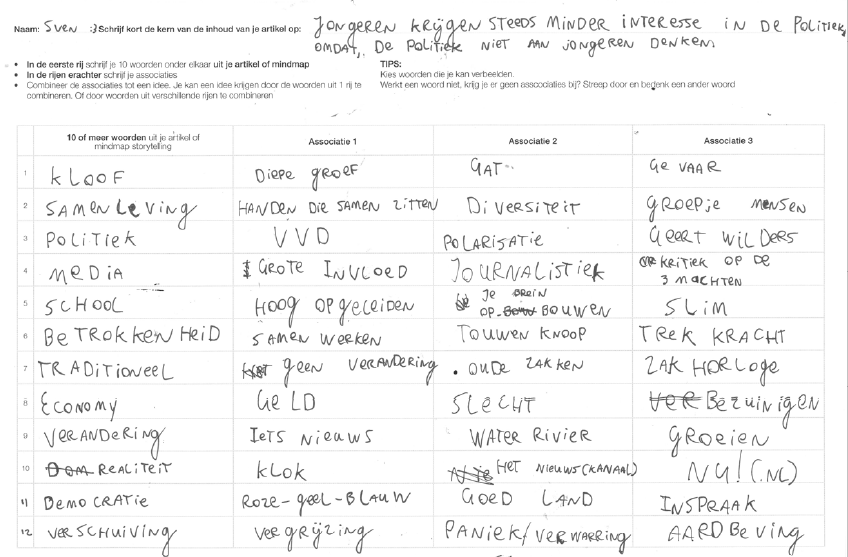 Naam: SVEN :3 Schrijf kort de kern van de inhoud van je artikel op: JONGEREN KRIJGEN STEEDS MINDER INTERESSE IN DE POLITIEK,
OMDAT, DE POLITIEK NIET AAN JONGEREN DENKEN.
• In de eerste rij schrijf je 10 woorden onder elkaar uit je artikel of mindmap
• In de rijen erachter schrijf je associaties
• Combineer de associaties tot een idee. Je kan een idee krijgen door de woorden uit 1 rij te
combineren. Of door woorden uit verschillende rijen te combineren
TIPS:
Kies woorden die je kan verbeelden.
Werkt een woord niet, krijg je er geen asscociaties bij? Streep door en bedenk een ander woord
10 of meer woorden uit je artikel of
mindmap storytelling
Associatie 1
Associatie 2
Associatie 3
1 KLOOF DIEPE GROEF GAT GEVAAR
2 SAMENLEVING HANDEN DIE SAMEN ZITTEN DIVERSITEIT GROEPJE MENSEN
3 POLITIEK VVD POLARISATIE GEERT WILDERS
4 MEDIA GROTE INVLOED JOURNALISTIEK KRITIEK OP DE
3 MACHTEN
5 SCHOOL HOOG OPGELEIDEN JE BREIN
OP-BOUWEN SLIM
6 BETROKKENHEID SAMEN WERKEN TOUWEN KNOOP TREK KRACHT
7 TRADITIONEEL GEEN VERANDERING OUDE ZAKKEN ZAK HORLOGE
8 ECONOMY GELD SLECHT BEZUINIGEN
9 VERANDERING IETS NIEUWS WATER RIVIER GROEIEN
10 REALITEIT KLOK HET NIEUWS (KANAAL) NU! (.NL)
11 DEMOCRATIE ROZE-GEEL-BLAUW GOED LAND INSPRAAK
12 VERSCHUIVING VERGRIJZING PANIEK/VERWARRING AARDBEVING